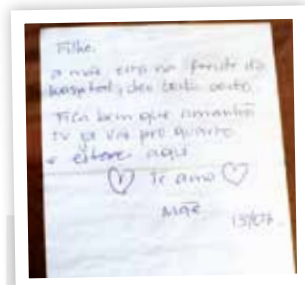 Filha,
a mãe está na frente do
hospital, deu tudo certo
Fica bem que amanhã
tu já vai pro quarto
e estarei aqui
Te amo
Mãe